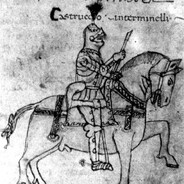 Castruccio Interminelli